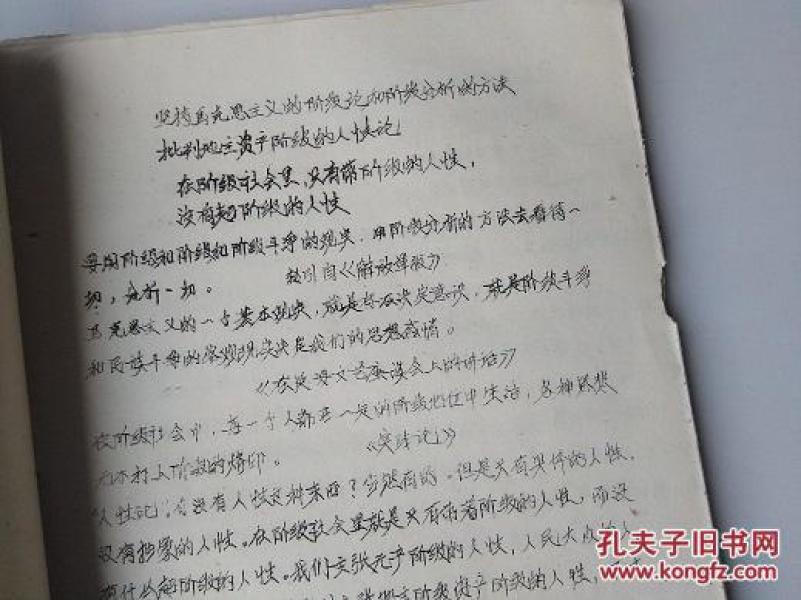 坚持马克思主义的阶级论和阶级分析的方法
批判地主资产阶级的人性论
在阶级社会里,只有带阶级的人性,
没有超阶级的人性
要用阶级和阶级和阶级斗争的观点,用阶级分析的方法去看待一
切,分析一切。 转引自《解放军报》
马克思主义的一个基本观点,就是存在决定意识,就是阶级斗争
和民族斗争的客观现实决定我们的思想感情。
《在延安文艺座谈会上的讲话》
在阶级社会中,每一个人都在一定的阶级地位中生活,各种思想
无不打上阶级的烙印。 《实践论》
人性论,有没有人性这种东西?当然有的。但是只有具体的人性,
没有抽象的人性。在阶级社会里就是只有带着阶级的人性,而没
有什么超阶级的人性。我们主张无产阶级的人性,人民大众的人
地主阶级资产阶级的人性,
孔夫子旧书网
www.kongfz.com